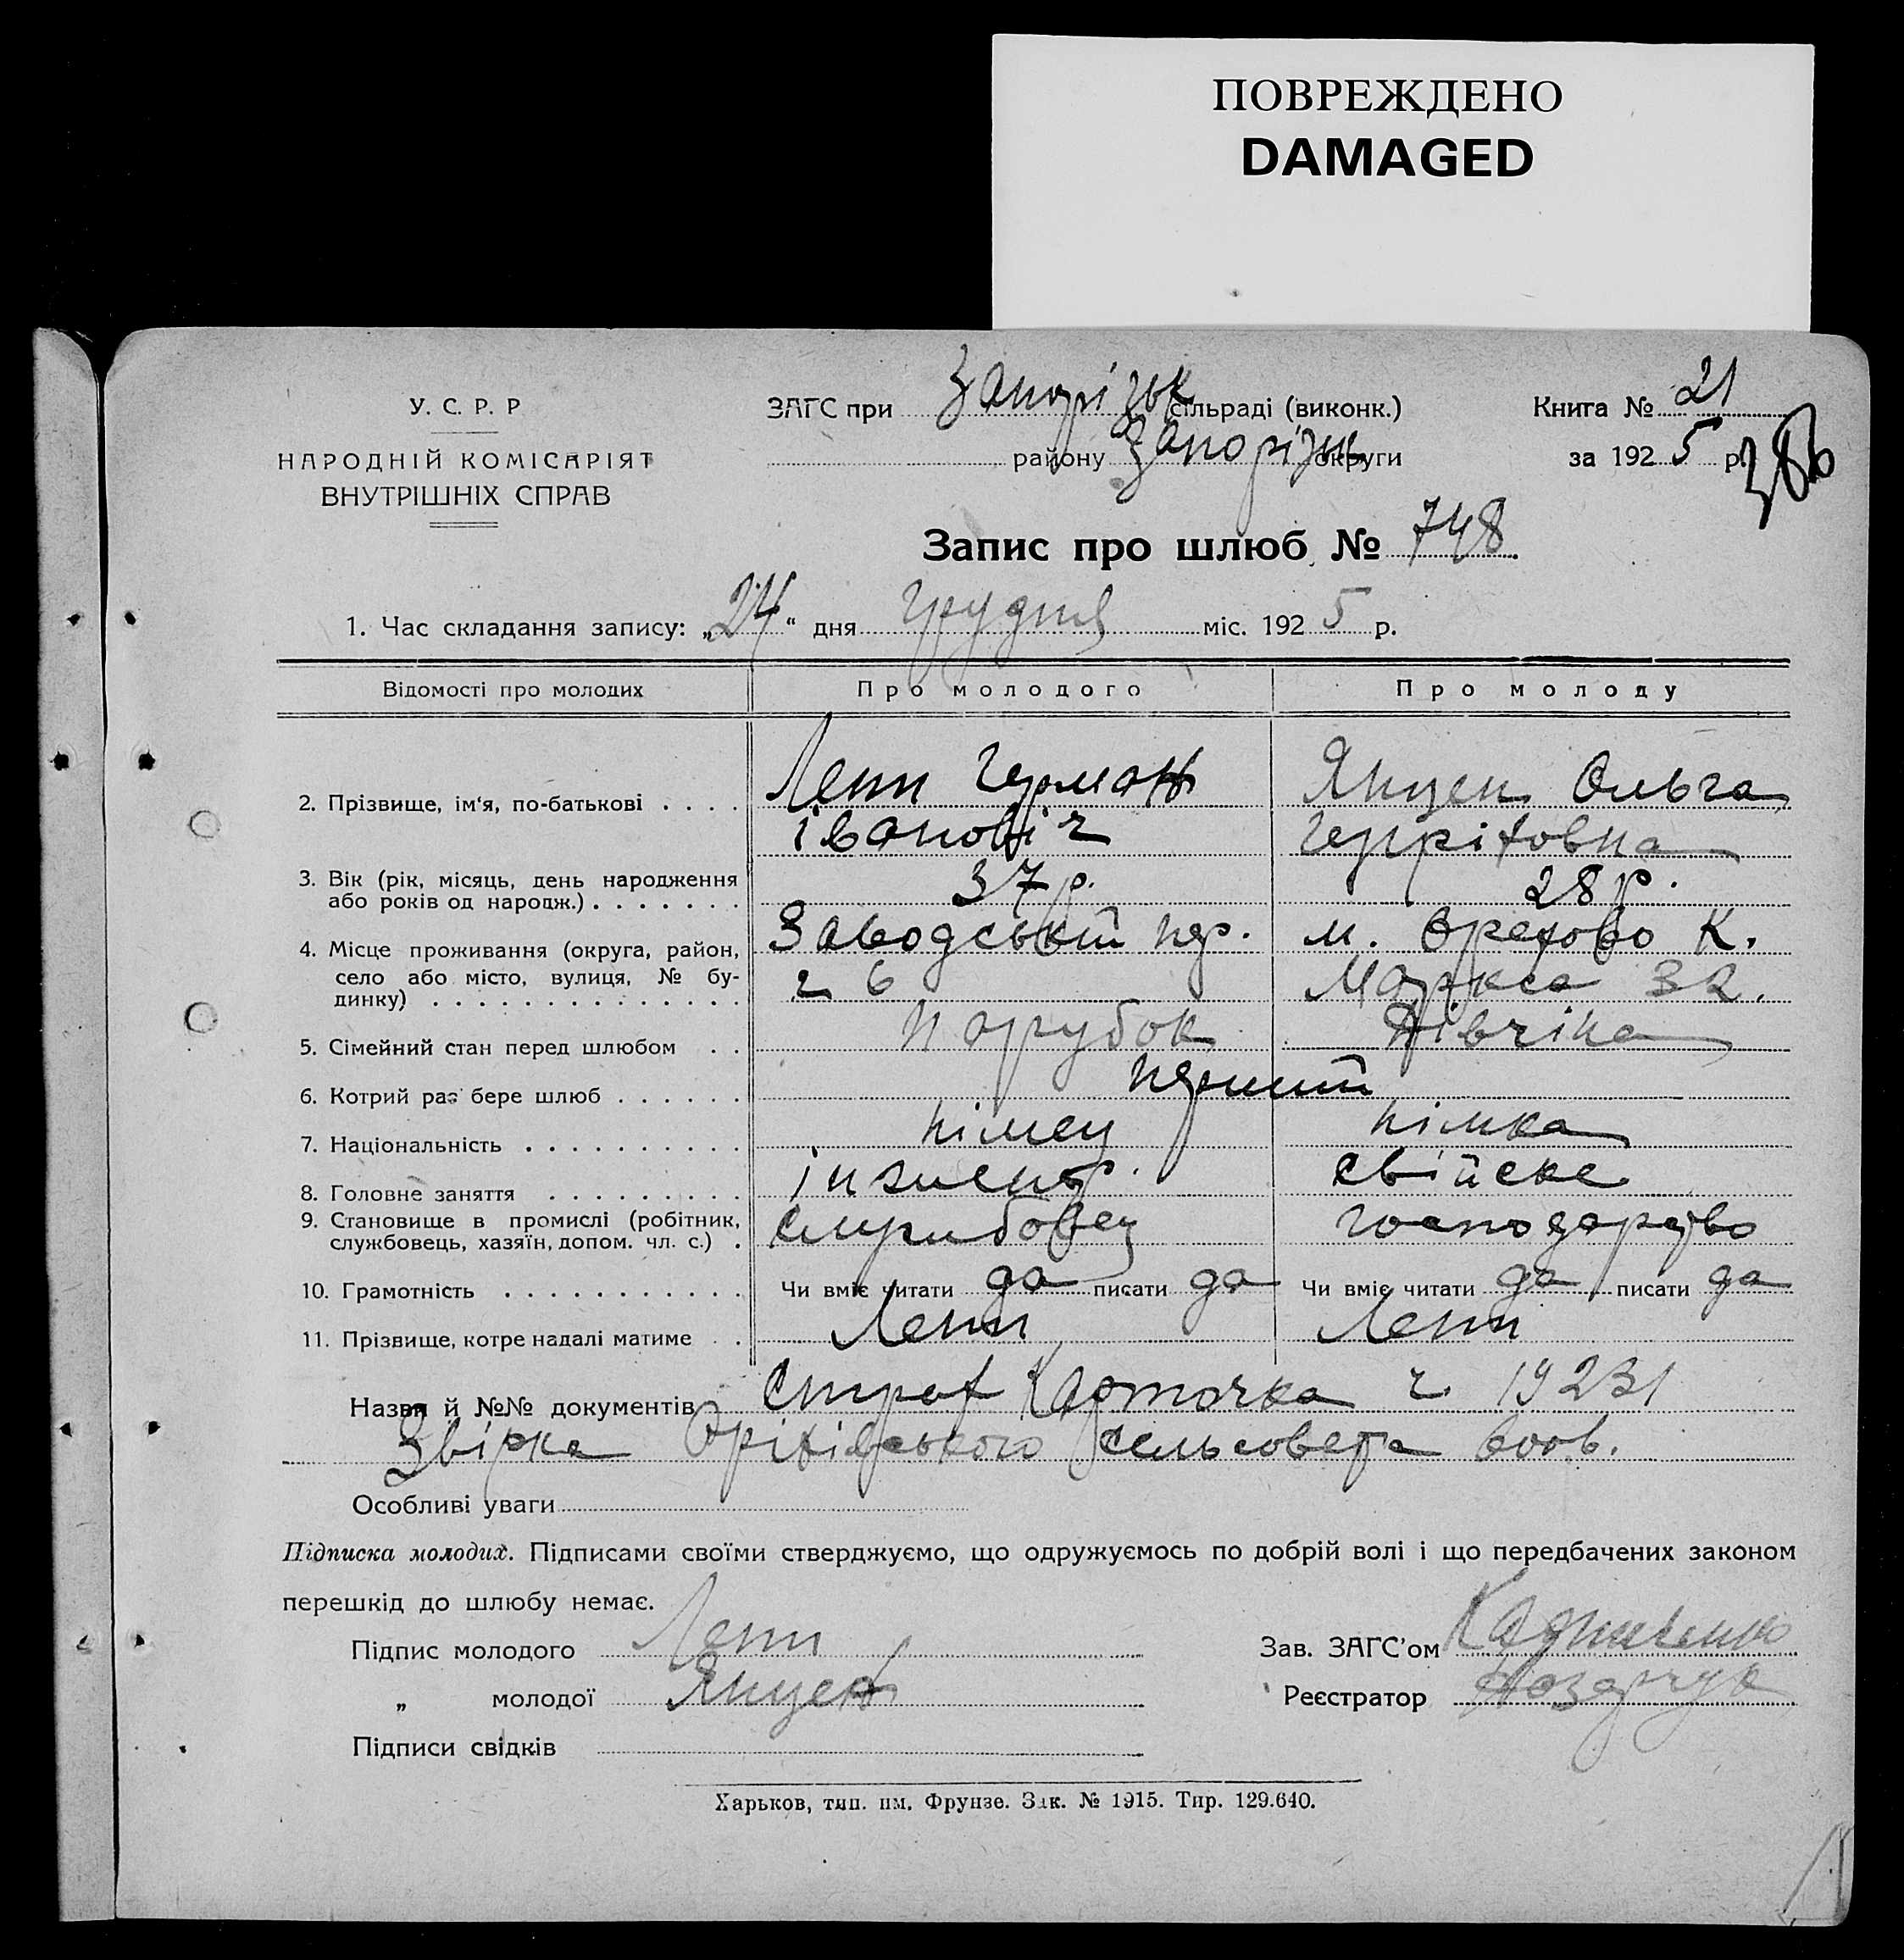 ПОВРЕЖДЕНО
DAMAGED
У. С. Р. Р
НАРОДНІЙ КОМІСАРІЯТ
ВНУТРІШНІХ СПРАВ
ЗАГС при Запорізьк сільраді (виконк.)
району Запорізьк округи
Книга № 21
за 1925 р.
386
Запис про шлюб № 748
1. Час складання запису: „24“ дня грудня міс. 1925 р.
Відомості про молодих Про молодого Про молоду
2. Прізвище, ім'я, по-батькові . . . . Лепп Герман Янцен Ольга
Іванович Геррітовна
3. Вік (рік, місяць, день народження 37 р. 28 р.
або років од народж.) . . . . . . .
4. Місце проживання (округа, район, Заводський пер. м. Орехово К.
село або місто, вулиця, № бу- ч 6 Маркса 32.
динку) . . . . . . . . . . . . . .
5. Сімейний стан перед шлюбом . . Парубок Дівчіна
6. Котрий раз бере шлюб . . . . . . перший
7. Національність . . . . . . . . . . німец німка
8. Головне заняття . . . . . . . . . інженер. свійске
9. Становище в промислі (робітник, службовец господарство
службовець, хазяїн, допом. чл. с.) .
10. Грамотність . . . . . . . . . . . Чи вміє читати да писати да Чи вміє читати да писати да
11. Прізвище, котре надалі матиме . . Лепп Лепп
Назви й №№ документів Страх Карточка ч. 19231
Звірка Оріхівського сельсовета
Особливі уваги
Підписка молодих. Підписами своїми стверджуємо, що одружуємось по добрій волі і що передбачених законом
перешкід до шлюбу немає.
Підпис молодого Лепп Зав. ЗАГС'ом
„ молодої Янцен Реєстратор
Підписи свідків
Харьков, тип. им. Фрунзе. Зак. № 1915. Тир. 129.640.